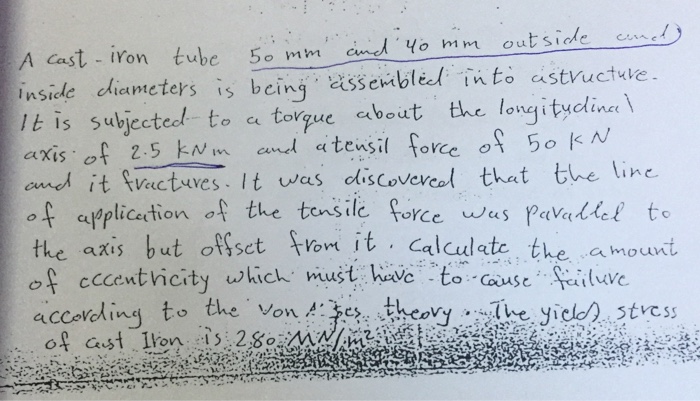 A cast-iron tube 50 mm and 40 mm outside and
inside diameters is being assembled into astructure.
It is subjected to a torque about the longitudinal
axis of 2.5 kNm and atensil force of 50 KN
and it fractures. It was discovered that the line
of application of the tensile force was parallel to
the axis but offset from it. Calculate the amount
of eccentricity which must have to cause failure
according to the Von theory. The yield stress
of cast Iron is 280 MN/m²